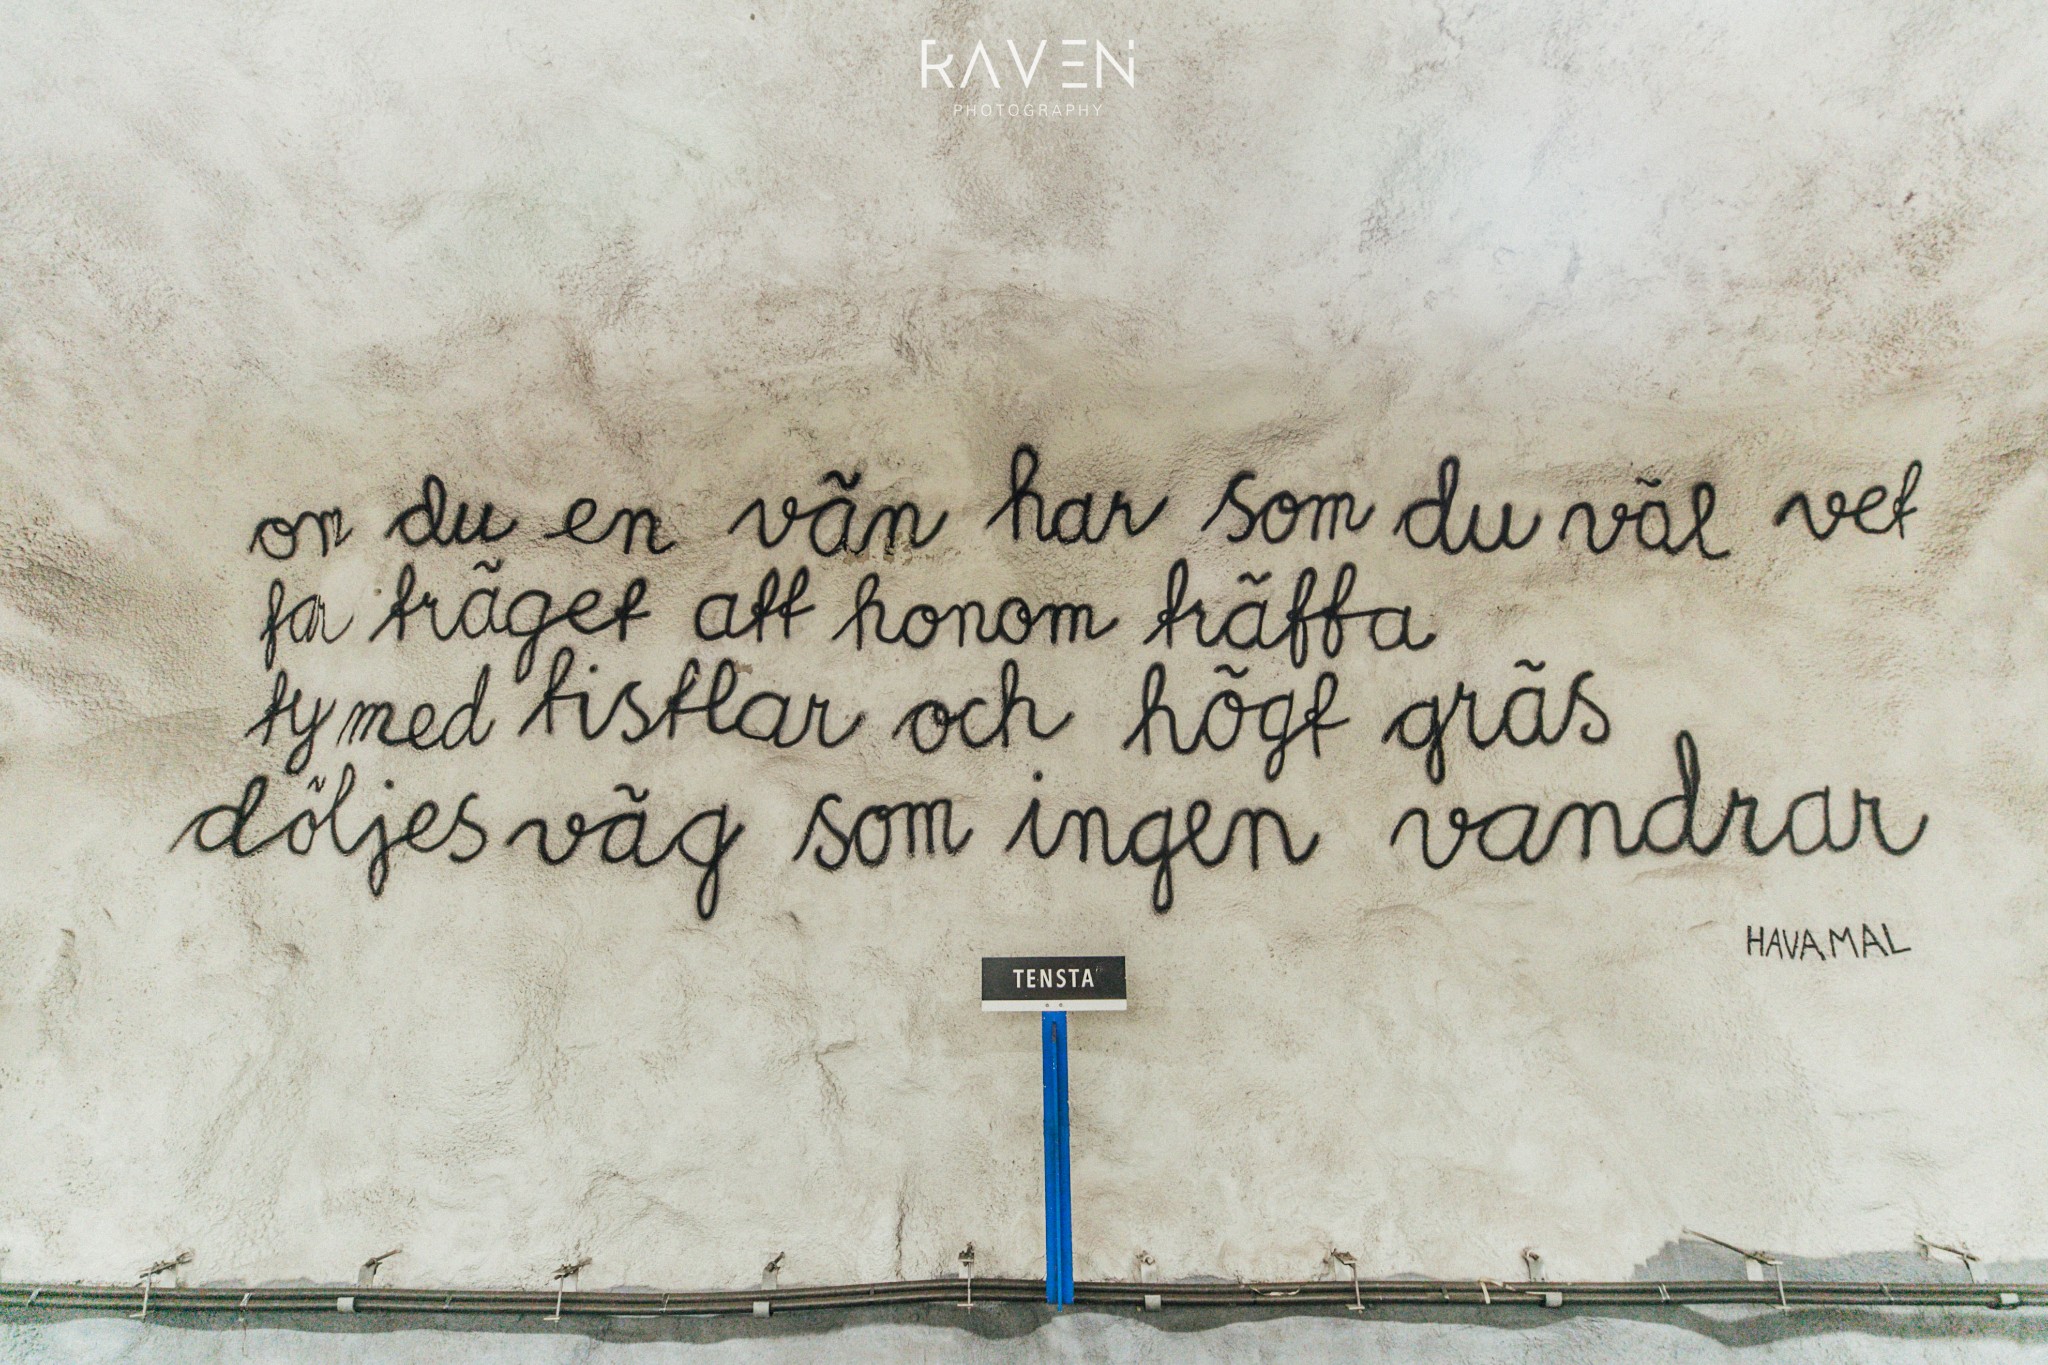 RAVEN
PHOTOGRAPHY
om du en vãn har som du vãl vet
far trãget att honom trãffa
ty med tistlar och hõgt grãs
dõljes vãg som ingen vandrar
HAVAMAL
TENSTA